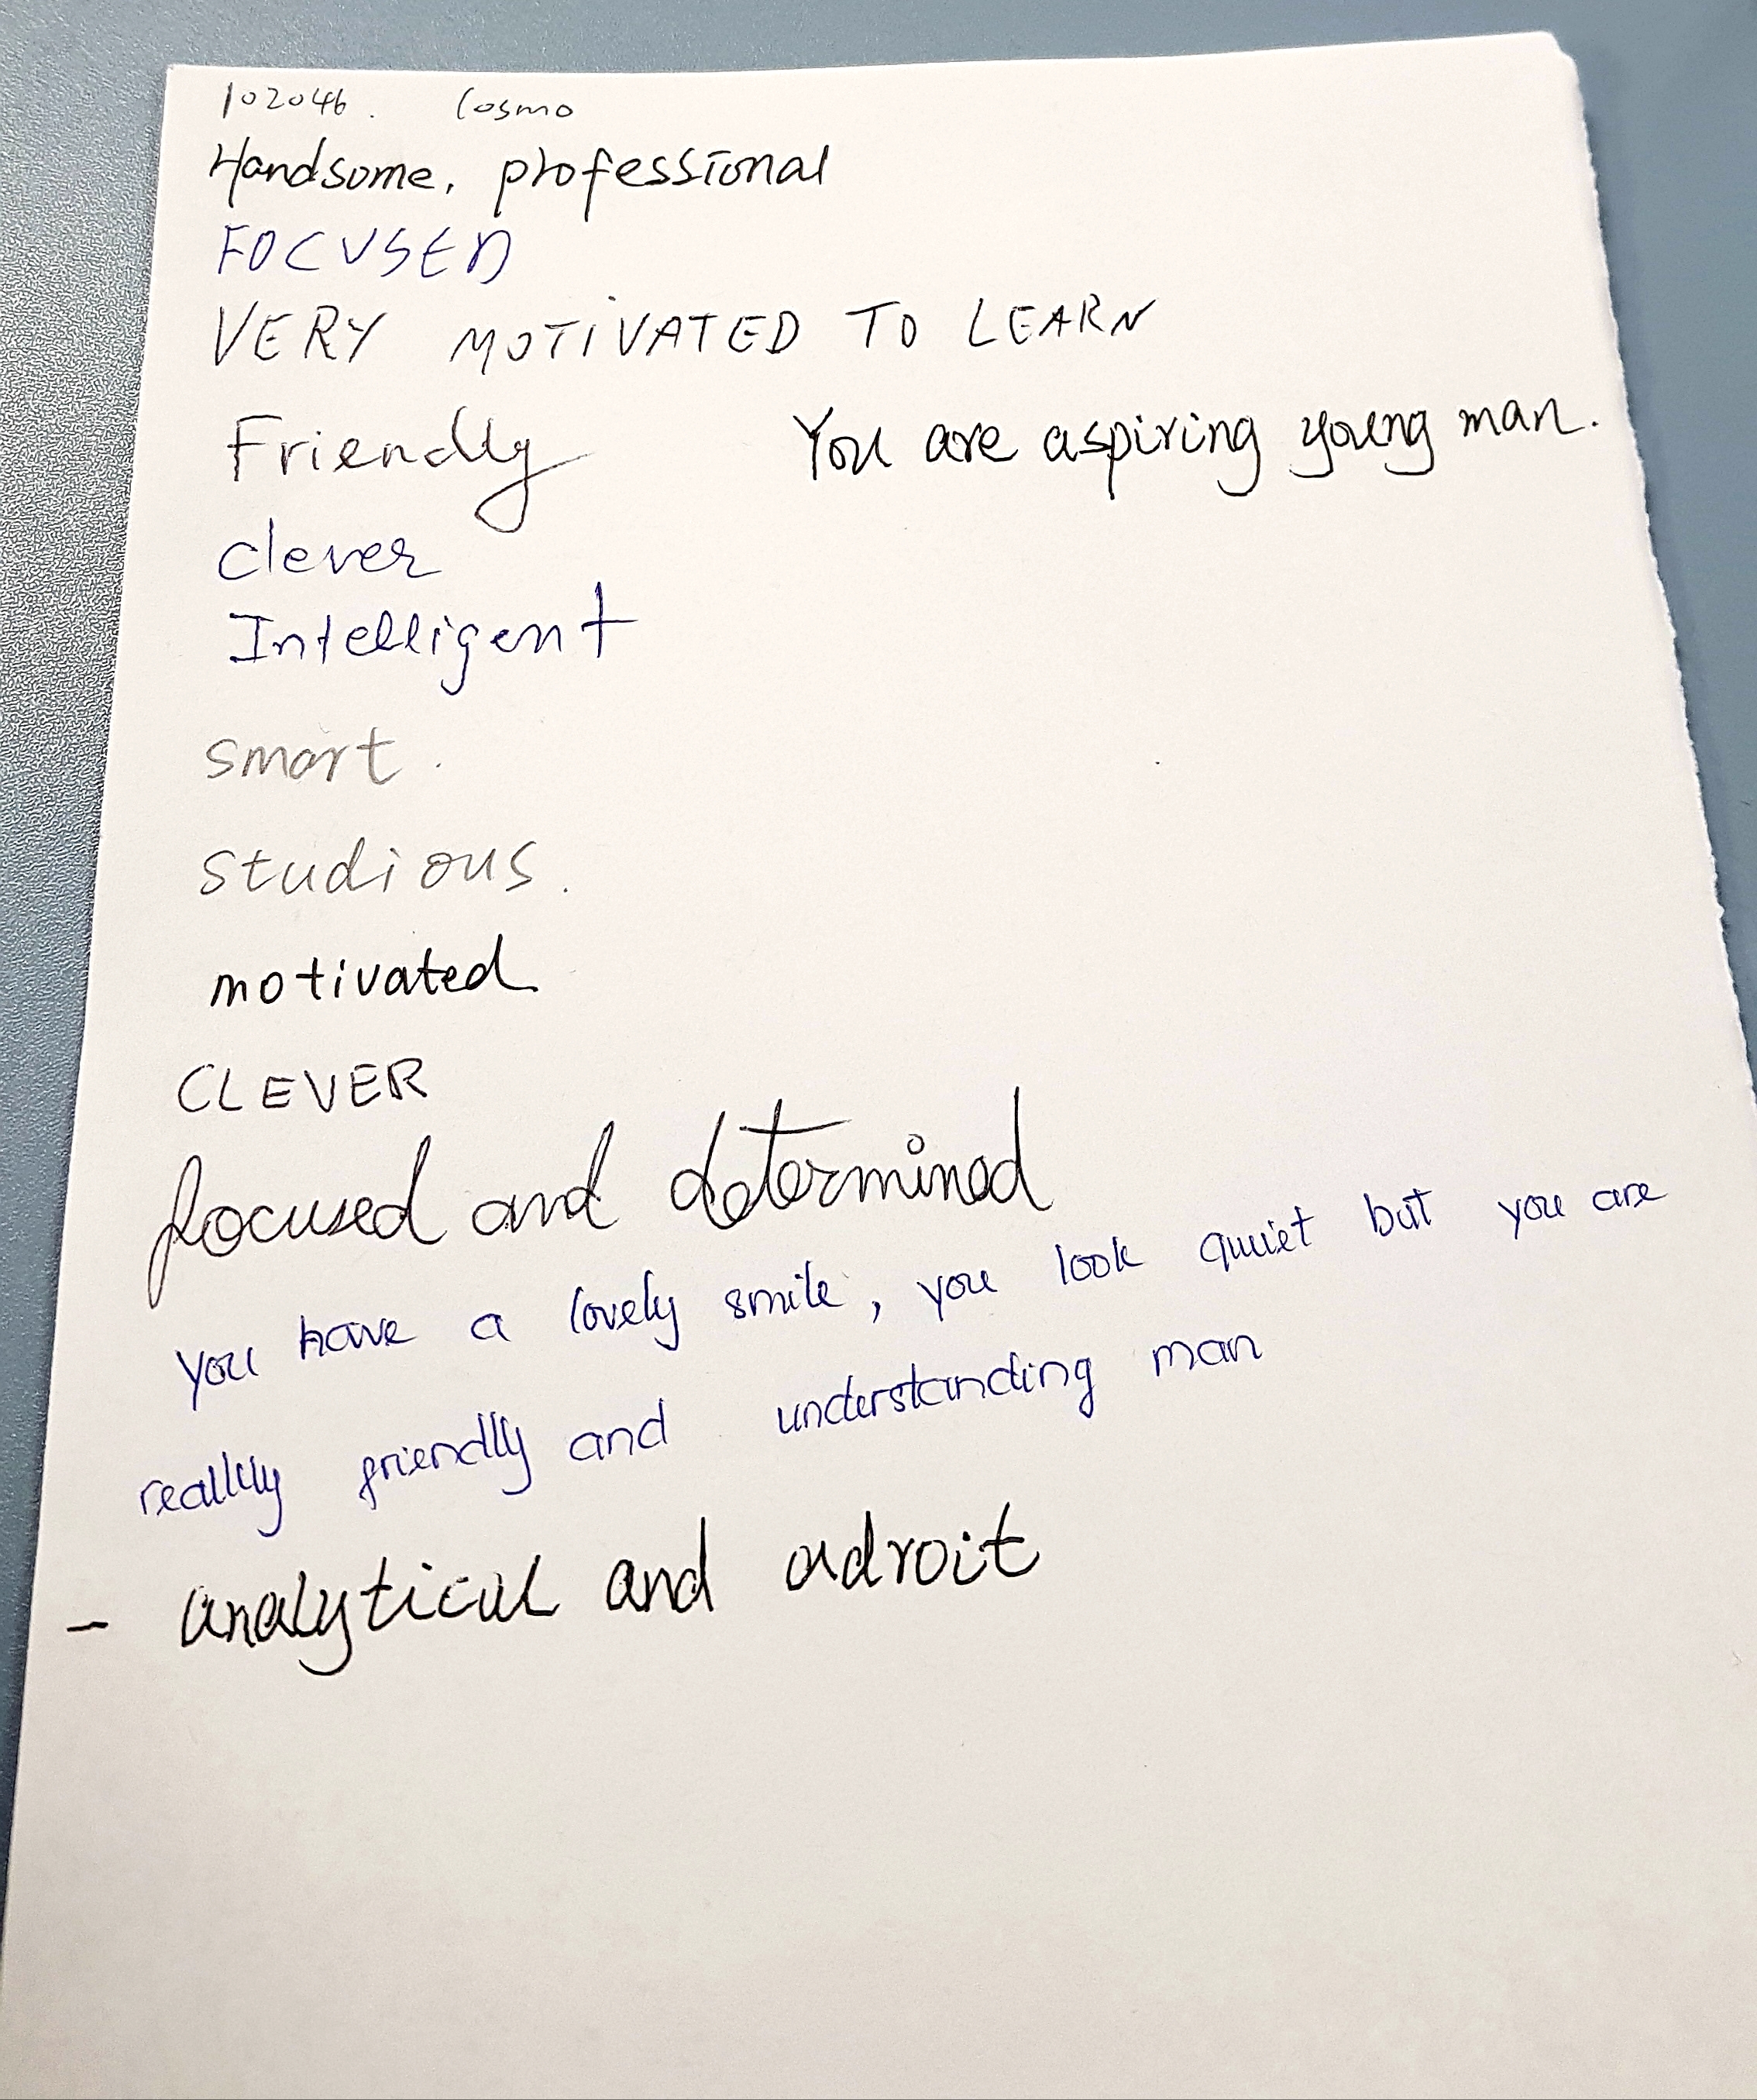 102046. Cosmo
Handsome, professional
FOCUSED
VERY MOTIVATED TO LEARN
Friendly You are aspiring young man.
clever
Intelligent
smart.
studious.
motivated
CLEVER
focused and determined
you have a lovely smile, you look quiet but you are
really friendly and understanding man
- analytical and adroit